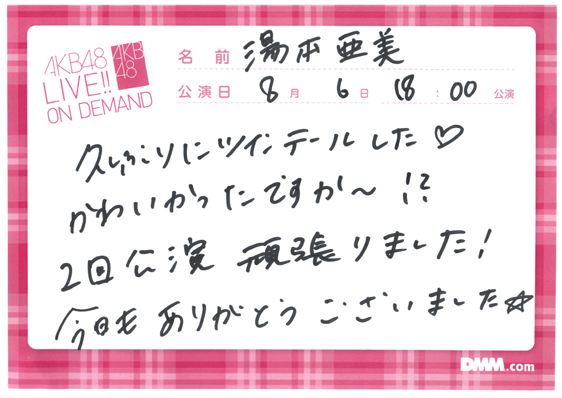 AKB48
LIVE!!
ON DEMAND
AKB
48
名前 湯本亜美
公演日 8月 6日 18:00 公演
久しぶりにツインテールした♡
かわいかったですか〜!?
2回公演 頑張りました!
今日も ありがとう ございました☆
DMM.com